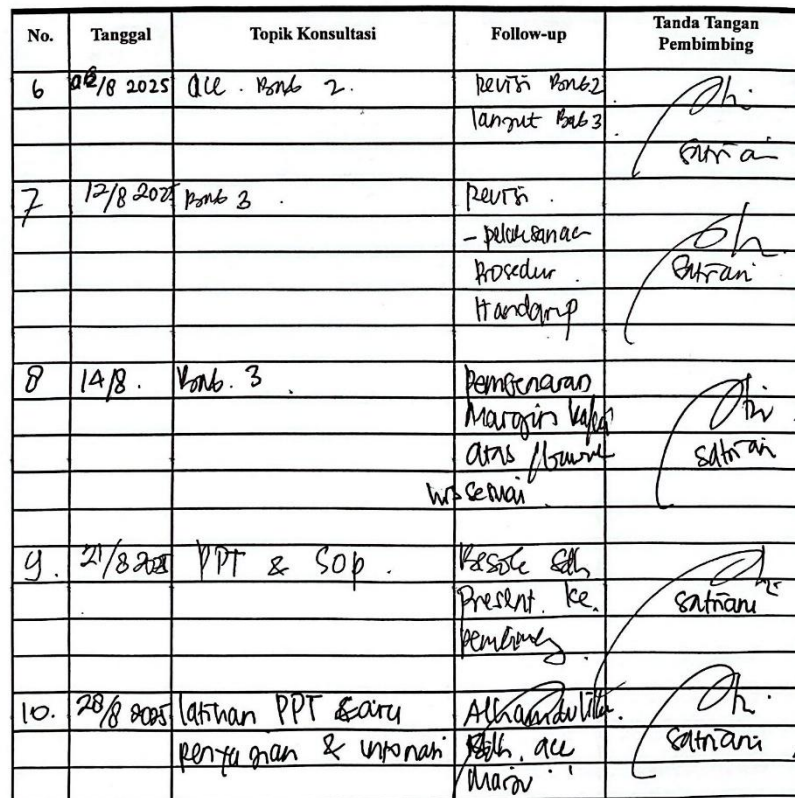 No. Tanggal Topik Konsultasi Follow-up Tanda Tangan Pembimbing
6 /8 2025 acc. Bab 2. Revisi Bab 2
lanjut Bab 3
Satriani
7 12/8 2025 Bab 3 Revisi.
- pelaksanaan
Prosedur. Satriani
Handgrip
8 14/8. Bab. 3. Pembenaran
Margin
atas Satriani
hrs sesuai.
9. 21/8 2025 PPT & SOP. Besok sdh
Present. ke. Satriani
pembimbing.
10. 28/8 2025 latihan PPT & cara Alhamdulillah.
penyajian & intonasi sdh. acc Satriani
Maju